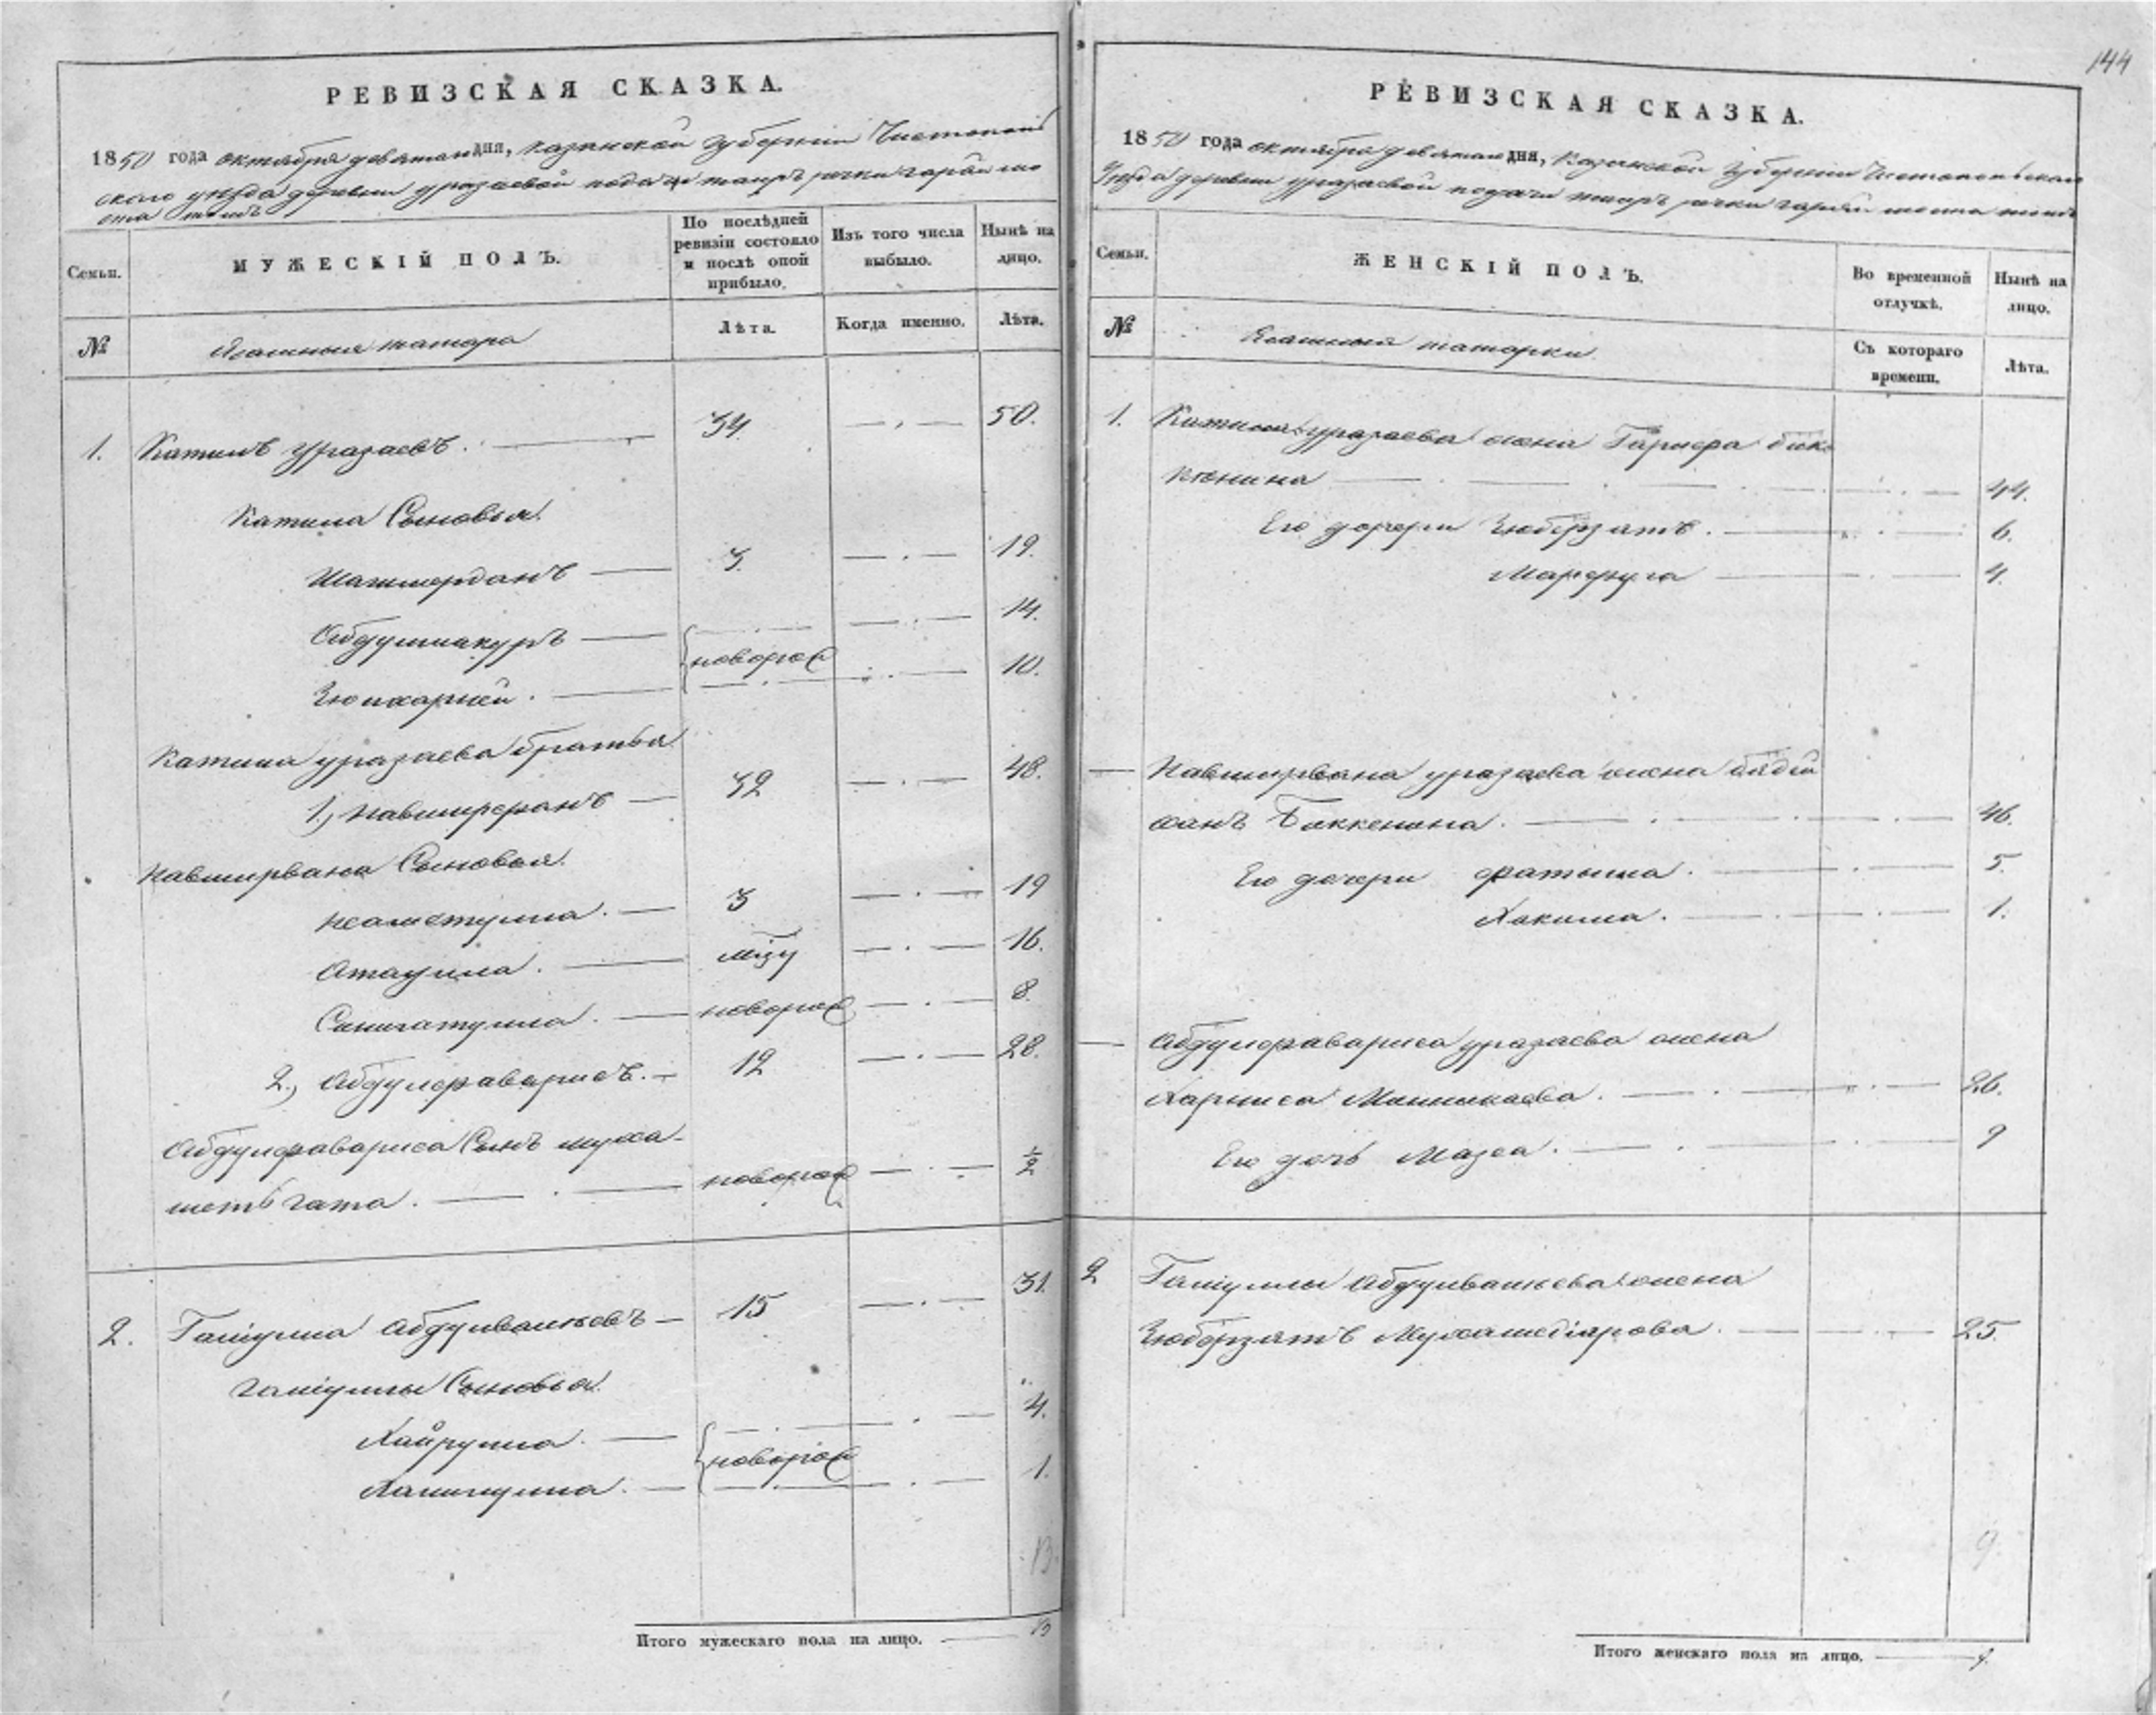 144
РЕВИЗСКАЯ СКАЗКА.
1850 года октября девятаго дня, Казанской губернии Чистополь
скаго уѣзда деревни Уразаевой
Семьи.
МУЖЕСКІЙ ПОЛЪ.
По послѣдней ревизіи состояло и послѣ оной прибыло.
Изъ того числа выбыло.
Нынѣ на лицо.
№
Ясашныя татара
Лѣта.
Когда именно.
Лѣта.
1. Катимъ Уразаевъ. 34. 50.
Катима Сыновья
Шагимарданъ 3. 19.
Абдулшакуръ 14.
новорож
Зюлкарней. 10.
Катима Уразаева братья
1, Навширванъ 32 48.
Навширвана Сыновья.
Неаметулла. 3 19
Атаулла. 16.
Синигатулла. новорож 8.
2, Абдулфаварисъ. 12 28.
Абдулфавариса Сынъ Муха-
метьгата. новорож ½
2. Галіулла Абдулвалиевъ 15 31.
Галіуллы Сыновья.
Хайрулла. 4.
новорож
Халиулла. 1.
13.
Итого мужескаго пола на лицо. 13
РЕВИЗСКАЯ СКАЗКА.
1850 года октября девятаго дня, Казанской губернии Чистопольскаго
Уѣзда деревни Уразаевой
Семьи.
ЖЕНСКІЙ ПОЛЪ.
Во временной отлучкѣ.
Нынѣ на лицо.
№
Ясашныя татарки.
Съ котораго времени.
Лѣта.
1. Катима Уразаева жена Гарифа Бик
кенина 44.
Его дочери Зюбярзятъ. 6.
Марфуга 4.
Навширвана Уразаева жена Бядей
жанъ Биккенина. 46.
Его дочери Фатыма. 5.
Хакима. 1.
Абдулфавариса Уразаева жена
Хариса Минликаева. 26.
Его дочь Мазеа. 9
2 Галіуллы Абдулвалиева жена
Зюбярзятъ Мухамедіярова. 25.
9.
Итого женскаго пола на лицо. 9.